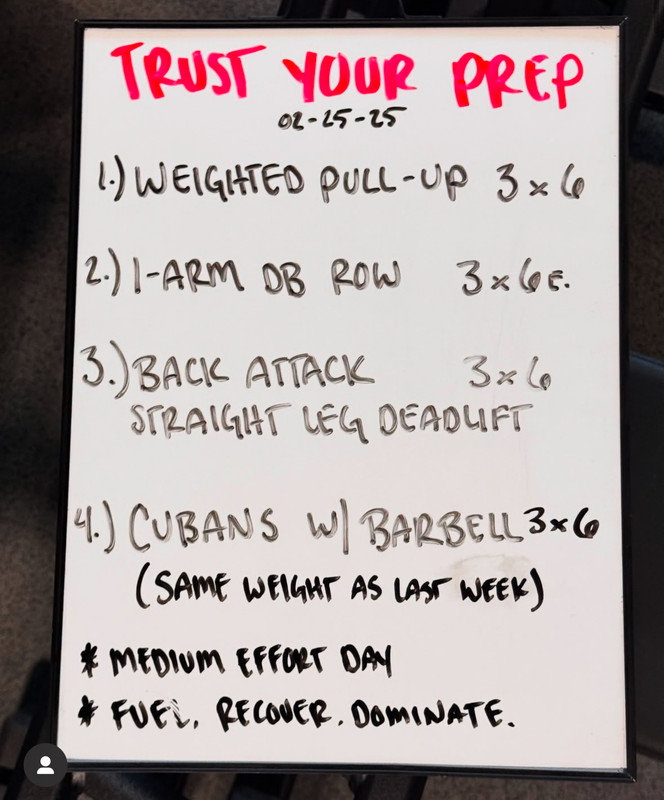 TRUST YOUR PREP
02-25-25
1.) WEIGHTED PULL-UP 3x6
2.) 1-ARM DB ROW 3x6 E.
3.) BACK ATTACK 3x6
STRAIGHT LEG DEADLIFT
4.) CUBANS W/ BARBELL 3x6
(SAME WEIGHT AS LAST WEEK)
* MEDIUM EFFORT DAY
* FUEL. RECOVER. DOMINATE.